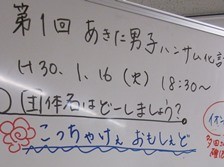 第1回 あきた男子ハンサム化計
H30.1.16 (火) 18:30〜
団体名はどーしましょう?
こっちゃけん おもしぇど